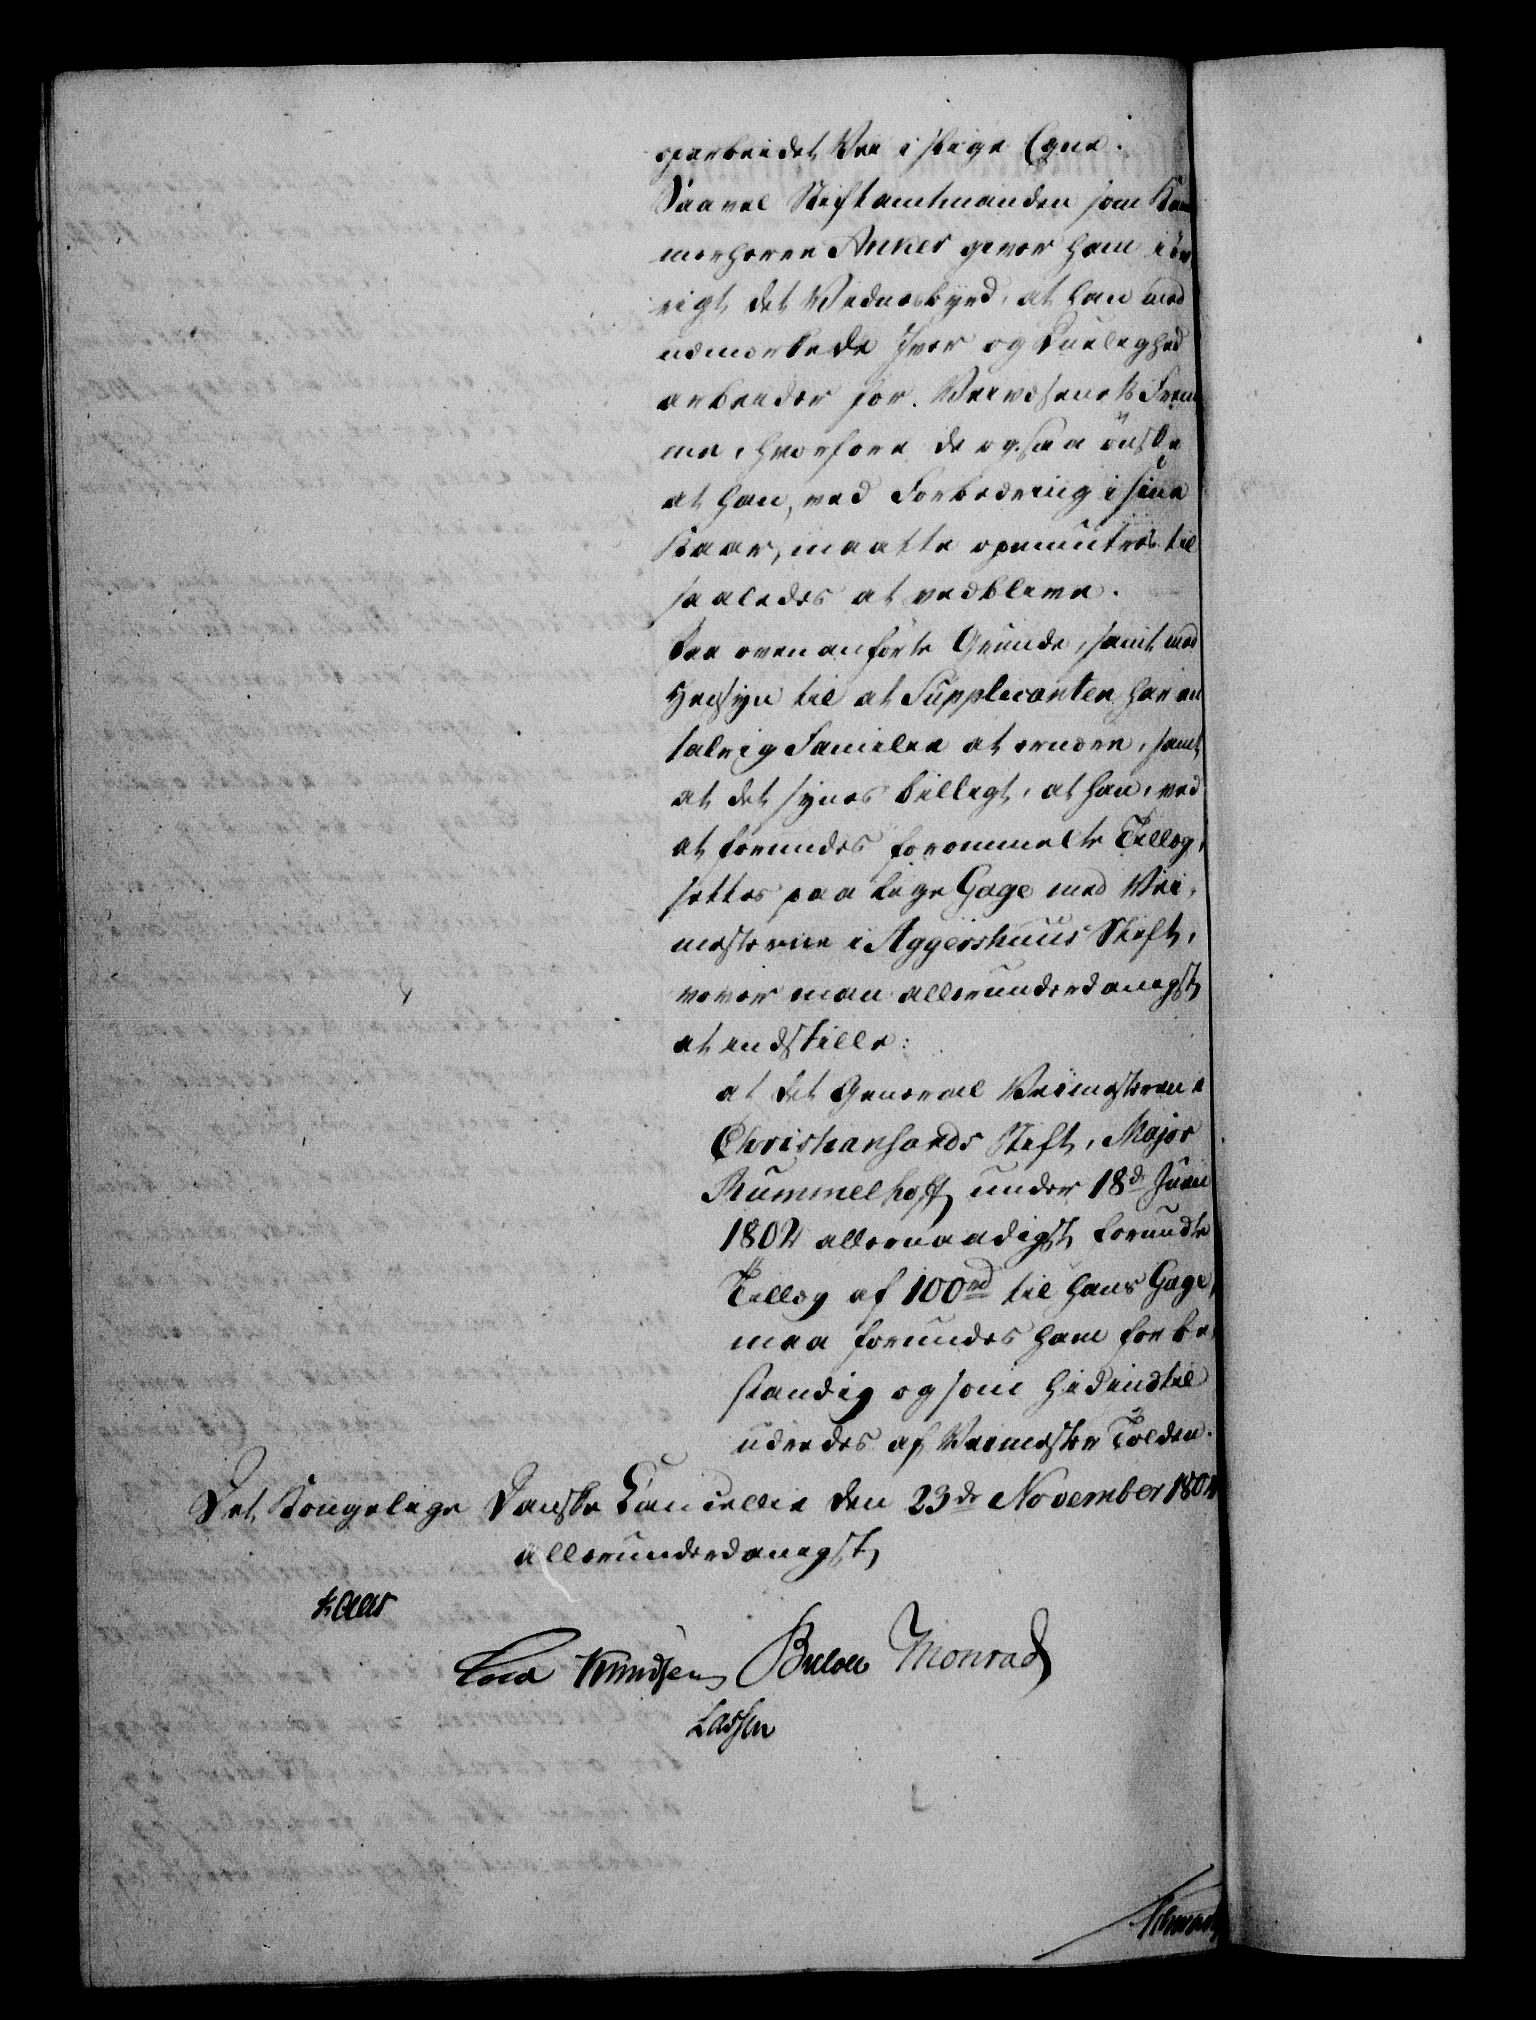 oparbeidet Vei i slige Egne.
Saavel Stiftamtmanden som Kam
merherre Anker giver ham iøv
rigt det Vidnesbyrd, at han med
udmærkede Iver og Duelighed
arbeider for Veivæsenets Frem
me, hvorfore de ogsaa ønske
at han, ved Forbedring i sine
Kaar, maatte opmuntres til
saaledes at vedblive.
Paa ovenanførte Grunde, samt med
Hensyn til at Supplicanten har en
talrig Familie at ernære, samt
at det synes billigt, at han, ved
at forundes forommeldte Tillæg,
settes paa lige Gage med Vei-
mesterne i Aggershuus Stift,
vover man allerunderdanigst
at indstille:
at det General Veimesteren i
Christiansands Stift, Major
Rummelhoff under 18d Juni
1802 allernaadigst forundte
Tillæg af 100 rd til hans Gage,
maa forundes ham for be-
standig og som hidindtil
udredes af Veimester Tolden.
Det Kongelige Danske Cancellie den 23de November 1804
allerunderdanigst
Kaas
Cold Knudsen Bülow Monrad
Lassen